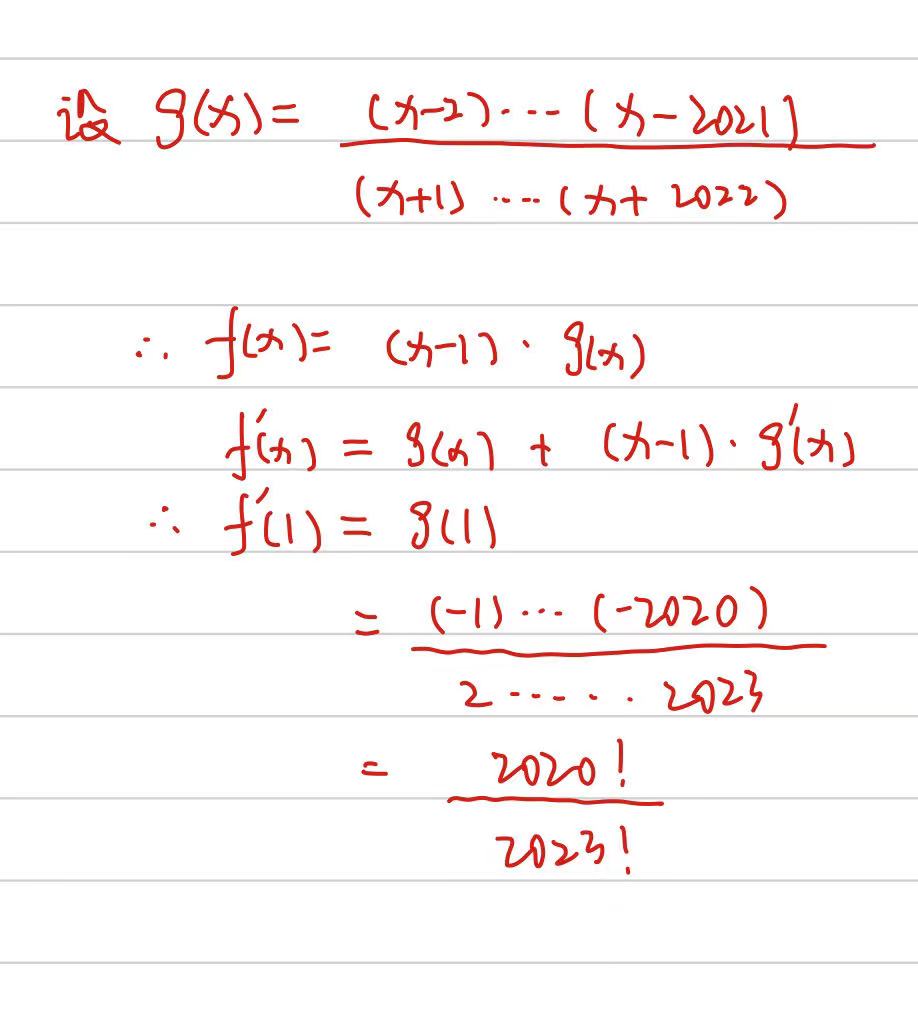 设 g(x) = (x-2)...(x-2021) / (x+1).....(x+2022)
∴ f(x) = (x-1) · g(x)
f'(x) = g(x) + (x-1) · g'(x)
∴ f'(1) = g(1)
= (-1)...(-2020) / 2......2023
= 2020! / 2023!